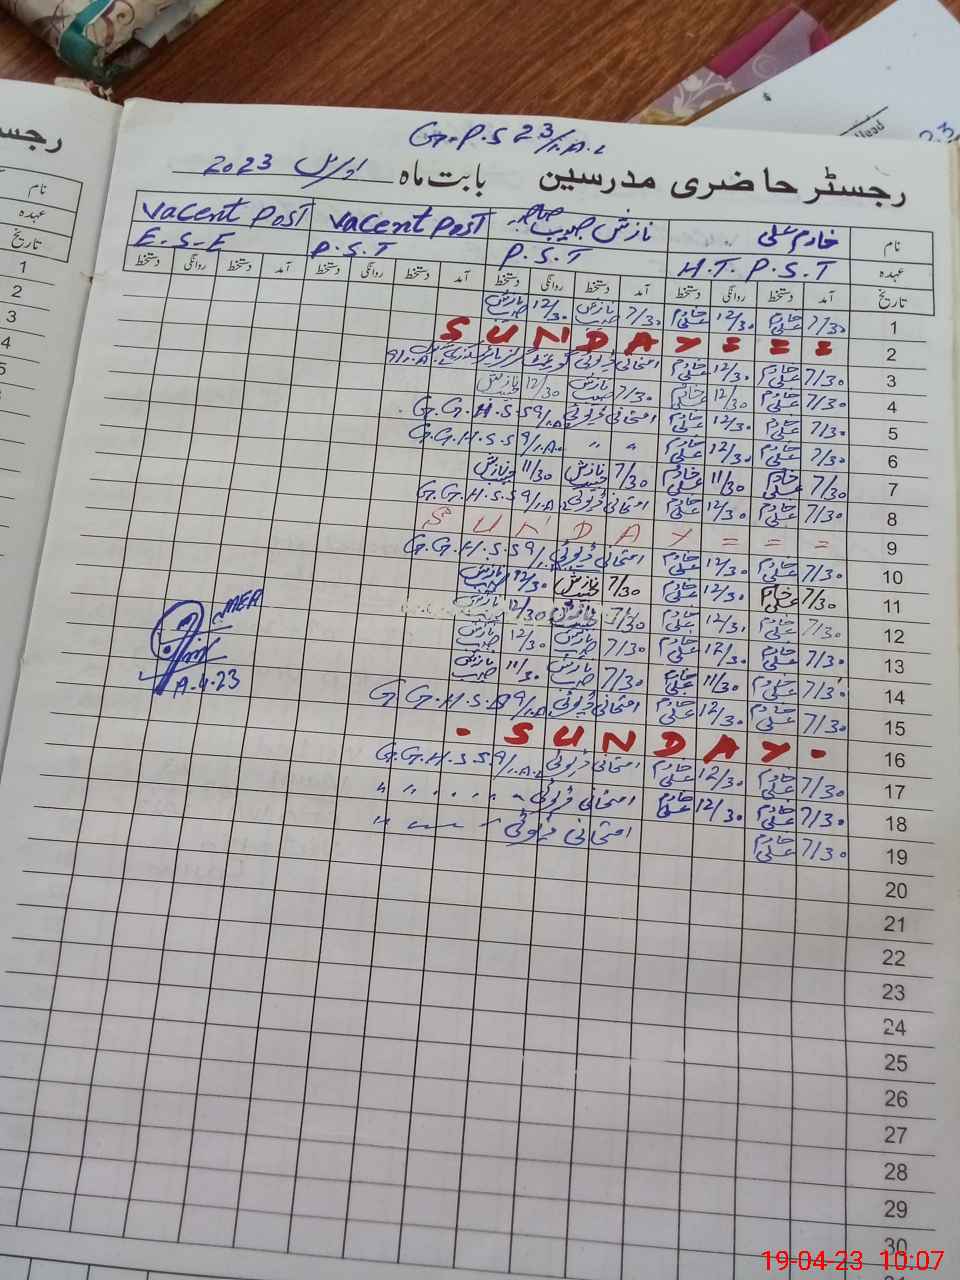 G.P.S 23/1.A.L
رجسٹر حاضری مدرسین بابت ماہ اپریل 2023
نام خادم علی نازش حبیب صاحبہ Vacent Post Vacent Post
عہدہ H.T. P.S.T P.S.T P.S.T E.S.E
تاریخ آمد دستخط روانگی دستخط آمد دستخط روانگی دستخط آمد دستخط روانگی دستخط آمد دستخط روانگی دستخط
1 7/30 خادم علی 12/30 خادم علی 7/30 نازش حبیب 12/30 نازش حبیب
2 S U N D A Y = = =
3 7/30 خادم علی 12/30 خادم علی امتحانی ڈیوٹی
4 7/30 خادم علی 12/30 خادم علی 7/30 نازش حبیب 12/30 نازش حبیب
5 7/30 خادم علی 12/30 خادم علی امتحانی ڈیوٹی G.G.H.S.S 9/1.A.
6 7/30 خادم علی 12/30 خادم علی " " G.G.H.S.S 9/1.A.
7 7/30 خادم علی 11/30 خادم علی 7/30 نازش حبیب 11/30 نازش حبیب
8 7/30 خادم علی 12/30 خادم علی امتحانی ڈیوٹی G.G.H.S.S 9/1.A
9 S U N D A Y = = =
10 7/30 خادم علی 12/30 خادم علی امتحانی ڈیوٹی G.G.H.S.S 9/1.
11 7/30 خادم علی 12/30 خادم علی 7/30 نازش حبیب 12/30 نازش حبیب
12 7/30 خادم علی 12/30 خادم علی 7/30 نازش حبیب 12/30 نازش حبیب
13 7/30 خادم علی 12/30 خادم علی 7/30 نازش حبیب 12/30 نازش حبیب
14 7/30 خادم علی 11/30 خادم علی 7/30 نازش حبیب 11/30 نازش حبیب
15 7/30 خادم علی 12/30 خادم علی امتحانی ڈیوٹی G.G.H.S.S 9/1.A.
16 - S U N D A Y -
17 7/30 خادم علی 12/30 خادم علی امتحانی ڈیوٹی G.G.H.S.S 9/1.A.L
18 7/30 خادم علی 12/30 خادم علی امتحانی ڈیوٹی " "
19 7/30 خادم علی امتحانی ڈیوٹی "
20
21
22
23
24
25
26
27
28
29
30
رجسٹر
نام
عہدہ
تاریخ
1
2
3
4
5
19-04-23 10:07